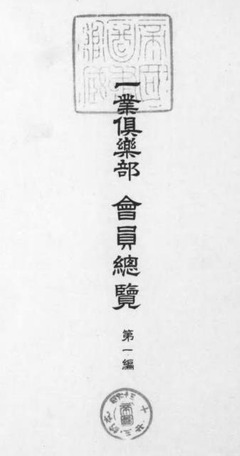 一業俱樂部 會員總覽 第一編